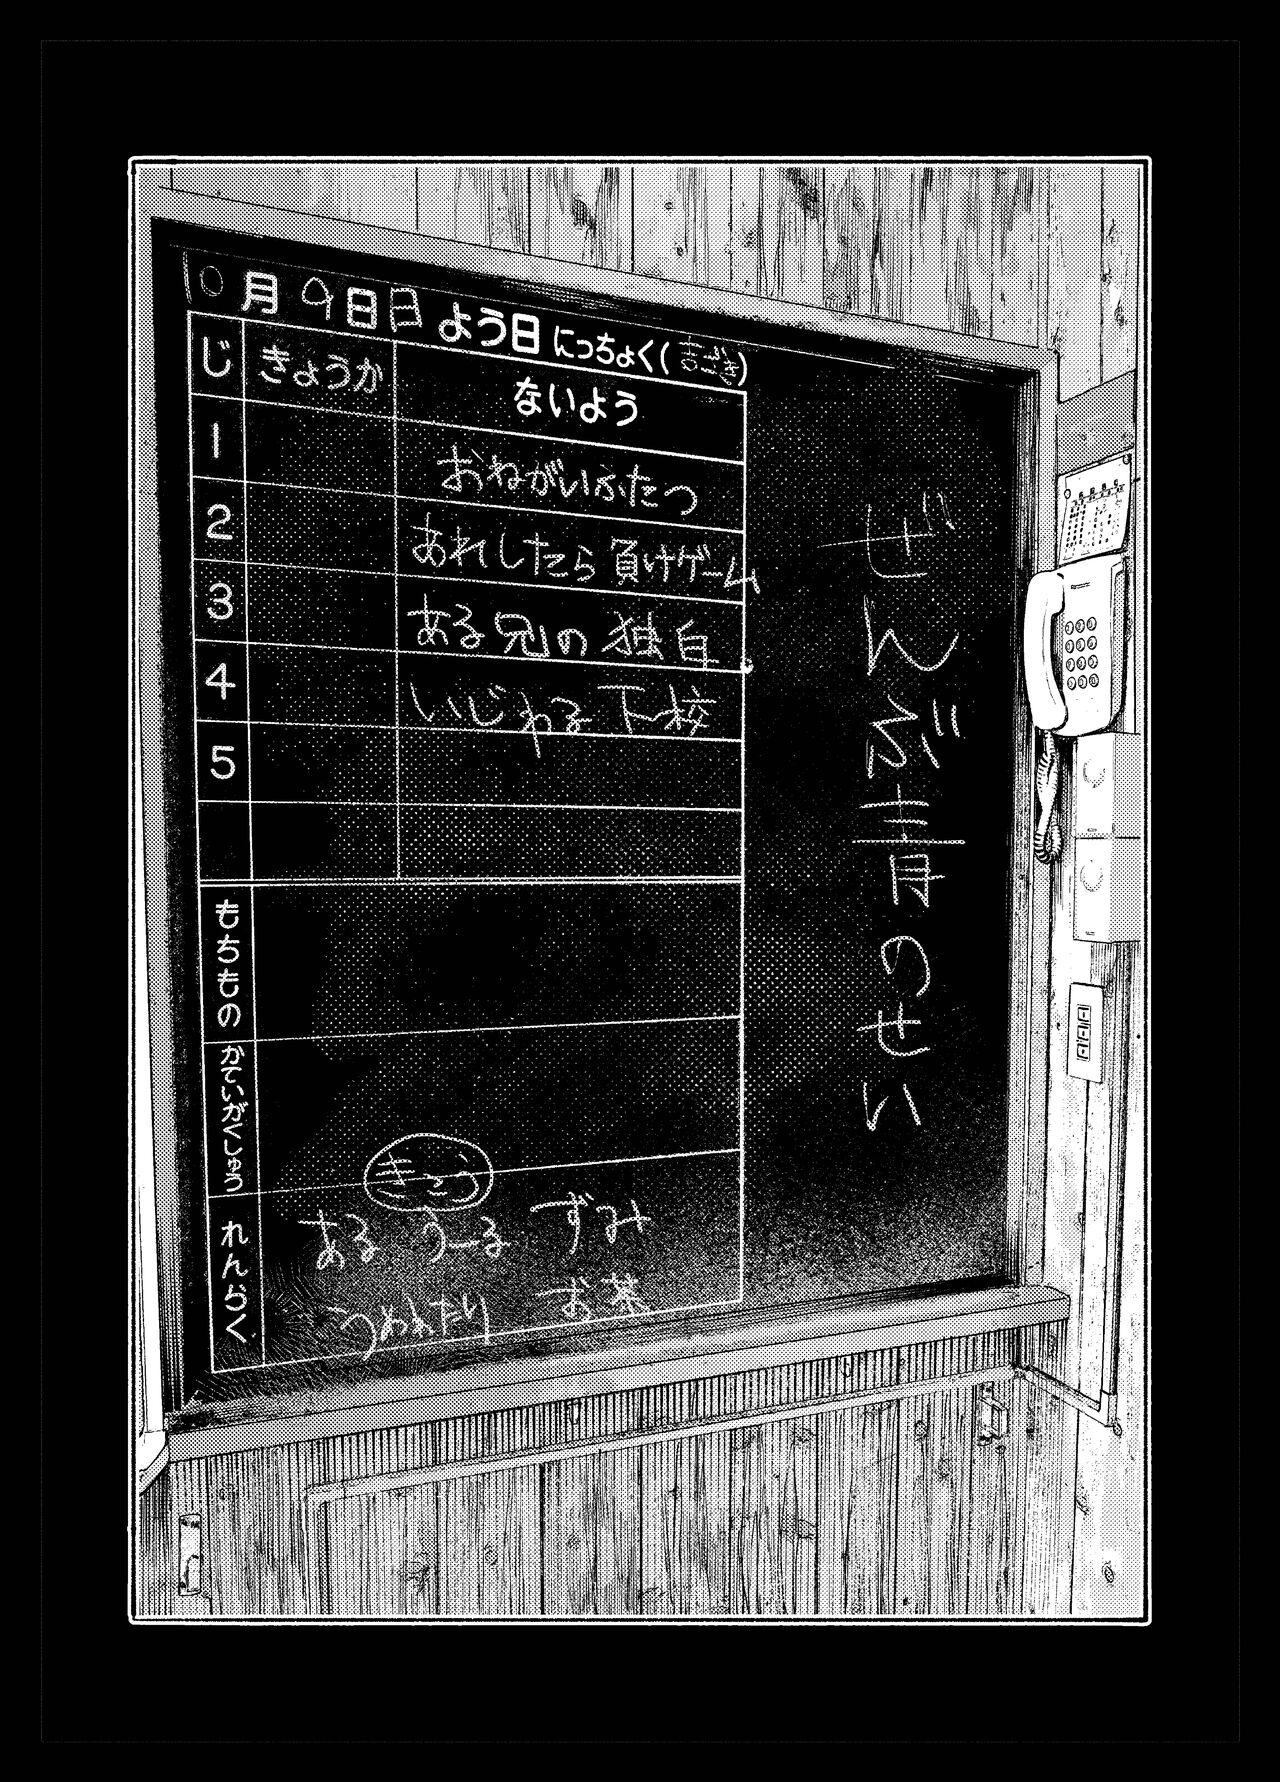 10月9日日よう日 にっちょく(
じ きょうか ないよう
1 おねがいふたつ
2 あれしたら負けゲーム
3 ある兄の独白
4 いじわる下校
5
もちもの
かていがくしゅう
れんらく
きょう
ある うーる ずみ
うめわたり お茶
ぜんぶ青のせい